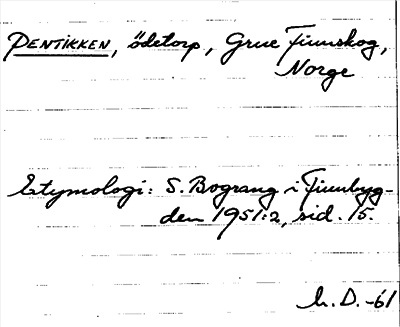 PENTIKKEN, ödetorp, Grue Finnskog,
Norge
Etymologi: S. Bograng i Finnbyg-
den 1951:2, sid. 15.
h. D. -61